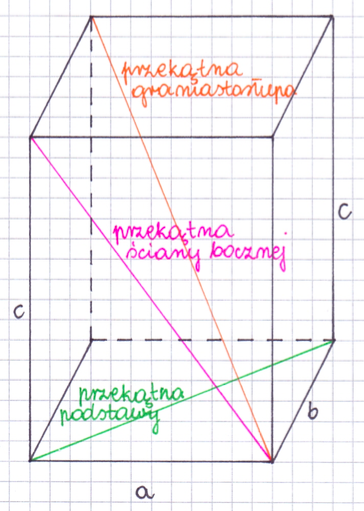 przekątna
graniastosłupa
c
przekątna
ściany bocznej
c
przekątna
podstawy
b
a